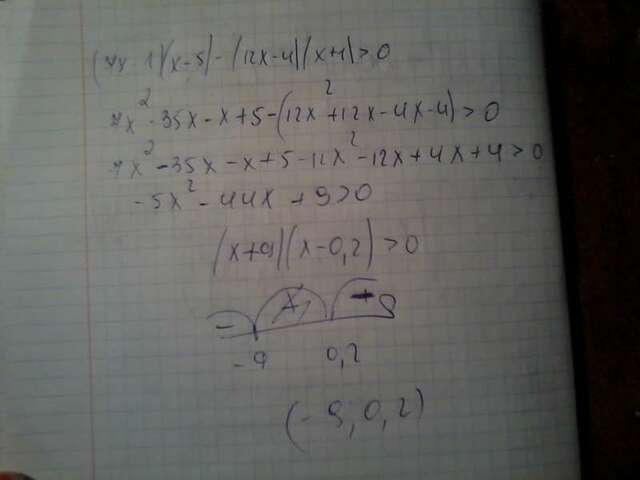 (7x-1)(x-5)-(12x-4)(x+1)>0
7x²-35x-x+5-(12x²+12x-4x-4)>0
7x²-35x-x+5-12x²-12x+4x+4>0
-5x²-44x+9>0
(x+9)(x-0,2)>0
- +
-9 0,2
(-9;0,2)